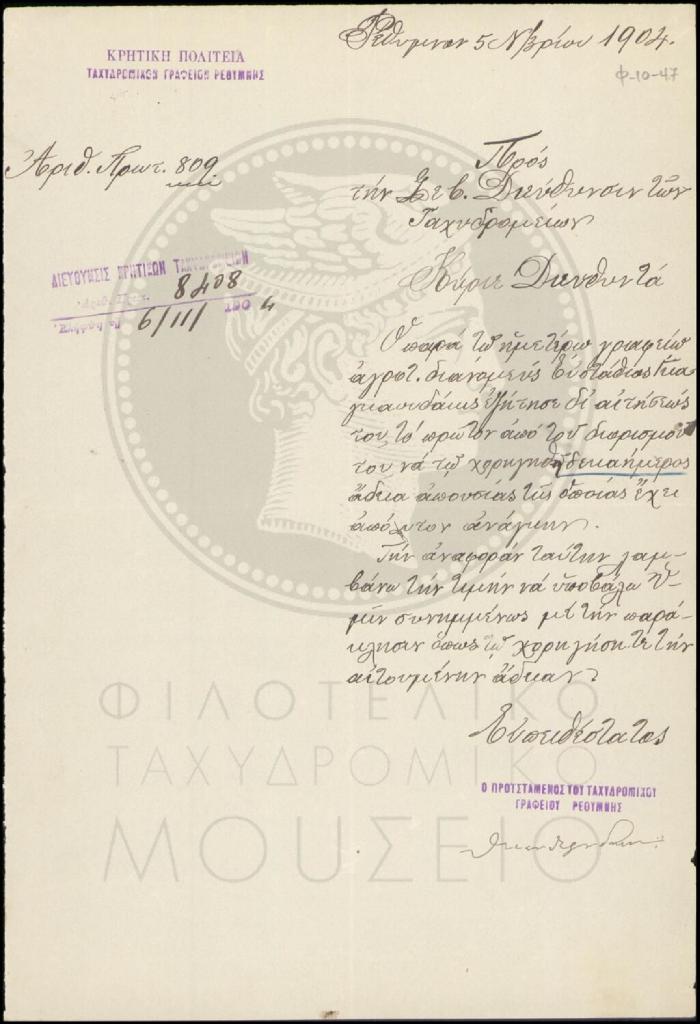 Ῥέθυμνον 5 Νβρίου 1904.
Φ-10-47
ΚΡΗΤΙΚΗ ΠΟΛΙΤΕΙΑ
ΤΑΧΥΔΡΟΜΙΚΟΝ ΓΡΑΦΕΙΟΝ ΡΕΘΥΜΝΗΣ
Ἀριθ. Πρωτ. 809
Πρὸς
τὴν Σεβ. Διεύθυνσιν τῶν
Ταχυδρομείων
ΔΙΕΥΘΥΝΣΙΣ ΚΡΗΤΙΚΩΝ ΤΑΧΥΔΡΟΜΕΙΩΝ
8408
6/11/ 4
Κύριε Διευθυντά
Ὁ παρὰ τῷ ἡμετέρῳ γραφείῳ
ἀγροτ. διανομεὺς Εὐστάθιος
ἐζήτησε δι' αἰτήσεώς
του τὸ πρῶτον ἀπὸ τοῦ διορισμοῦ
του νὰ τῷ χορηγηθῇ δεκαήμερος
ἄδεια ἀπουσίας τῆς ὁποίας ἔχει
ἀπόλυτον ἀνάγκην.
Τὴν ἀναφορὰν ταύτην λαμ-
βάνω τὴν τιμὴν νὰ ὑποβάλω Ὑ-
μῖν συνημμένως μὲ τὴν παρά-
κλησιν ὅπως τῷ χορηγήσητε τὴν
αἰτουμένην ἄδειαν.
Εὐπειθέστατος
Ο ΠΡΟΥΣΤΑΜΕΝΟΣ ΤΟΥ ΤΑΧΥΔΡΟΜΙΚΟΥ
ΓΡΑΦΕΙΟΥ ΡΕΘΥΜΝΗΣ
ΦΙΛΟΤΕΛΙΚΟ
ΤΑΧΥΔΡΟΜΙΚΟ
ΜΟΥΣΕΙΟ